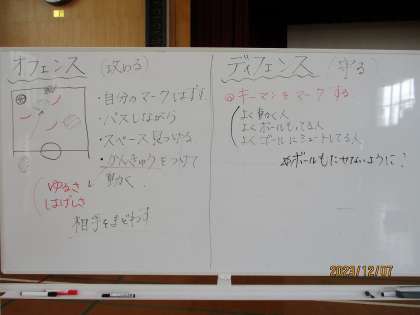 オフェンス (攻める)
・自分のマークはずす
・パスしながら
・スペース見つける
・かんきゅうをつけて
動く。
ゆるさ
はげしさ
相手をまどわす
ディフェンス (守る)
◎キーマンをマークする
よく動く人
よくボールもってる人
よくゴールにシュートしてる人
※ボールもたせないように!
2023/12/07